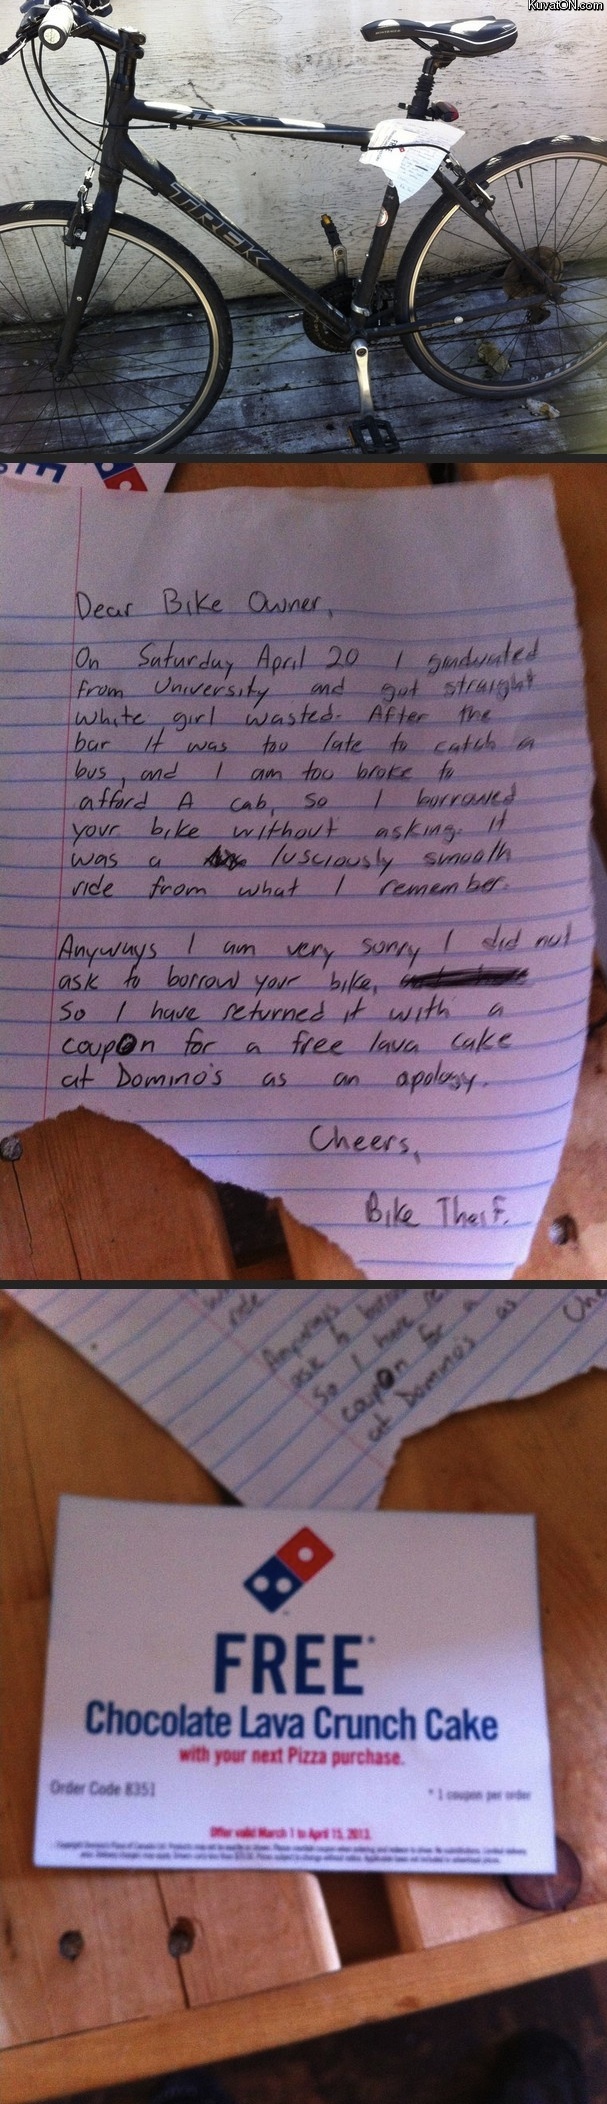 KuvatON.com
TREK
Dear Bike Owner,
On Saturday April 20 I graduated
from University and got straight
white girl wasted. After the
bar it was too late to catch a
bus, and I am too broke to
afford A cab, so I borrowed
your bike without asking. It
was a lusciously smooth
ride from what I remember.
Anyways I am very sorry I did not
ask to borrow your bike,
So I have returned it with a
coupon for a free lava cake
at Domino's as an apology.
Cheers,
Bike Theif.
ride
Anyways
ask to borrow
So I have re
coupon for a
at Domino's as
Che
FREE*
Chocolate Lava Crunch Cake
with your next Pizza purchase.
Order Code 8351
* 1 coupon per order
Offer valid March 1 to April 15, 2013.